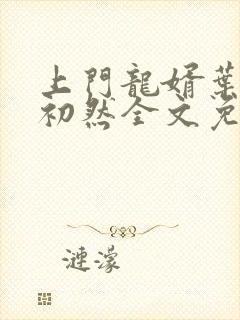 上門龍婿葉
初然全文免
漣濛